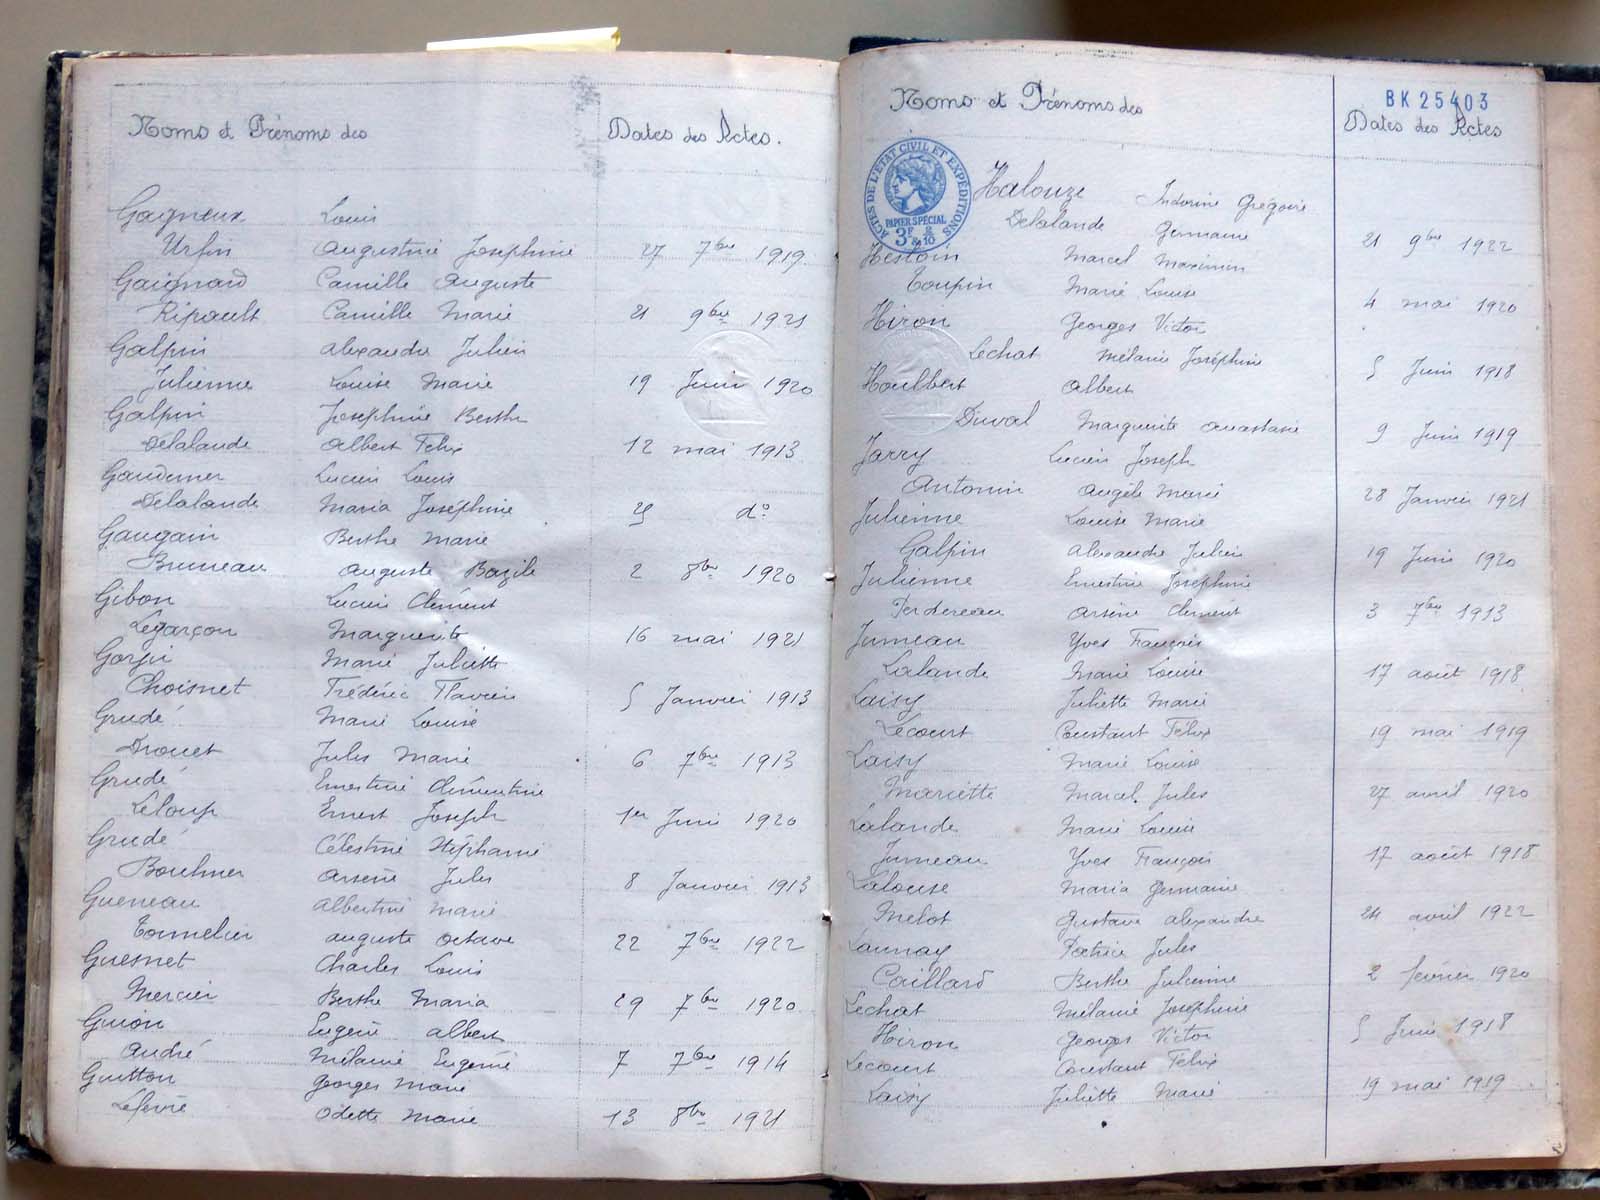 Noms et Prénoms des Dates des Actes.
Gagneux Louis
Urfin Augustine Joséphine 27 7bre 1919.
Gaignard Camille Auguste
Ripault Camille Marie 21 9bre 1921
Galpin Alexandre Julien
Julienne Louise Marie 19 Juin 1920
Galpin Joséphine Berthe
Delalande Albert Félix 12 mai 1913
Lucien Louis
Delalande Maria Joséphine 25 do
Gaugain Berthe Marie
Bruneau Auguste Bazile 2 8bre 1920
Gibon Lucien Clément
Legarçon Marguerite 16 mai 1921
Marie Juliette
Choisnet Frédéric Flavien 5 Janvier 1913
Grudé Marie Louise
Drouet Jules Marie 6 7bre 1913
Grudé Ernestine Clémentine
Leloup Ernest Joseph 1er Juin 1920
Grudé Célestine Stéphanie
Arsène Jules 8 Janvier 1913
Gueneau Albertine Marie
Tonnelier Auguste Octave 22 7bre 1922
Guesnet Charles Louis
Mercier Berthe Maria 29 7bre 1920
Guion Eugène Albert
André Mélanie Eugénie 7 7bre 1914
Guitton Georges Marie
Lefèvre Odette Marie 13 8bre 1921
BK 25403
Noms et Prénoms des Dates des Actes
ACTES DE L'ÉTAT CIVIL ET EXPÉDITIONS
PAPIER SPÉCIAL
Halouze Grégoire
Delalande Germaine 21 9bre 1922
Hestoin Marcel Maximin
Toupin Marie Louise 4 mai 1920
Hiron Georges Victor
Lechat Mélanie Joséphine 5 Juin 1918
Houlbert Albert
Duval Marguerite Anastasie 9 Juin 1919
Jarry Lucien Joseph
Antonin Angèle Marie 28 Janvier 1921
Julienne Louise Marie
Galpin Alexandre Julien 19 Juin 1920
Julienne Ernestine Joséphine
Perdereau Arsène Clément 3 7bre 1913
Jumeau Yves François
Lalande Marie Louise 17 août 1918
Laisy Juliette Marie
Lecourt Constant Félix 19 mai 1919
Laisy Marie Louise
Mariette Marcel Jules 27 avril 1920
Lalande Marie Louise
Jumeau Yves François 17 août 1918
Lalouse Maria Germaine
Melot Gustave Alexandre 24 avril 1922
Launay Patrice Jules
Caillard Berthe Julienne 2 février 1920
Lechat Mélanie Joséphine
Hiron Georges Victor 5 Juin 1918
Lecourt Constant Félix
Laisy Juliette Marie 19 mai 1919